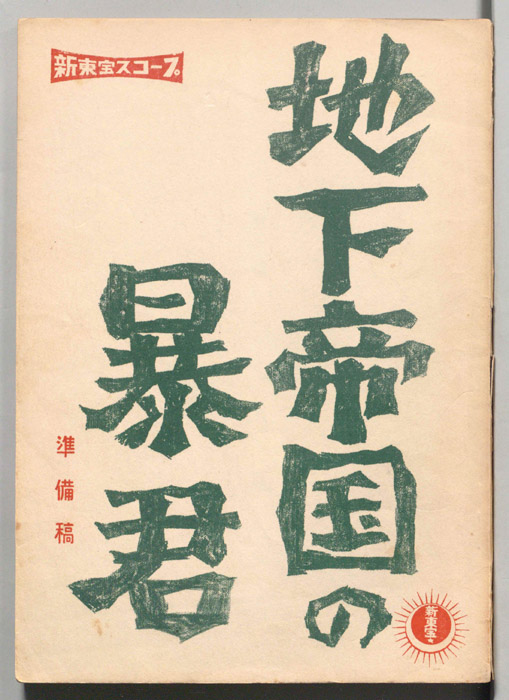 新東宝スコープ
地下帝国の
暴君
準備稿
新東宝